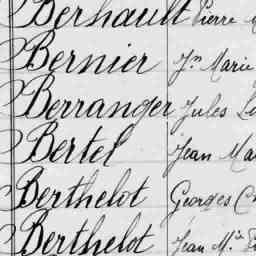 Berhault Pierre
Bernier Jn Marie
Berranger Jules
Bertel Jean
Berthelot Georges
Berthelot Jean M.